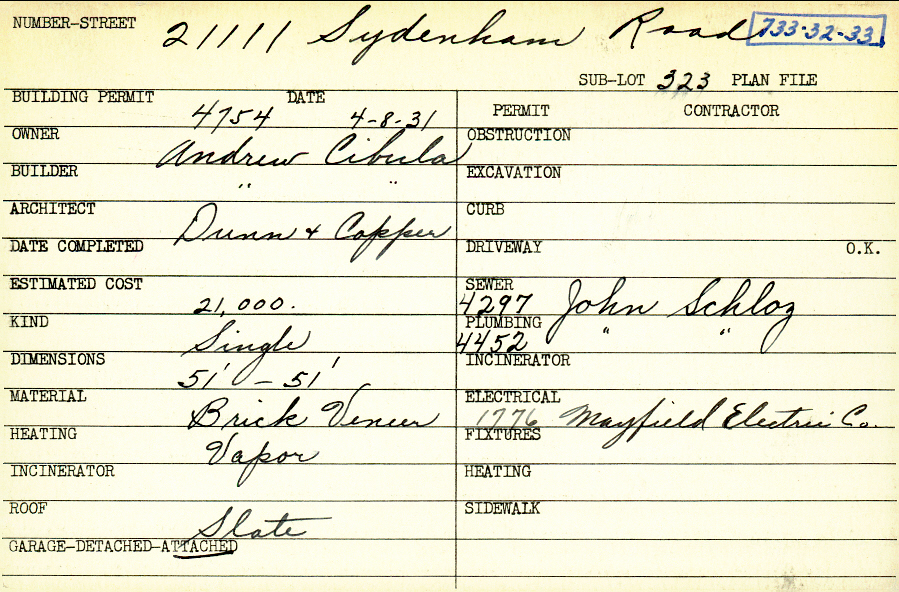 NUMBER-STREET 21111 Sydenham Road 733-32-33
SUB-LOT 323 PLAN FILE
BUILDING PERMIT 4754 DATE 4-8-31
PERMIT CONTRACTOR
OWNER Andrew Cibula
OBSTRUCTION
BUILDER " "
EXCAVATION
ARCHITECT Dunn & Copper
CURB
DATE COMPLETED
DRIVEWAY O.K.
ESTIMATED COST 21,000.
SEWER 4297 John Schloz
KIND Single
PLUMBING 4452 " "
DIMENSIONS 51' - 51'
INCINERATOR
MATERIAL Brick Veneer
ELECTRICAL 1776 Mayfield Electric Co.
HEATING Vapor
FIXTURES
INCINERATOR
HEATING
ROOF Slate
SIDEWALK
GARAGE-DETACHED-ATTACHED